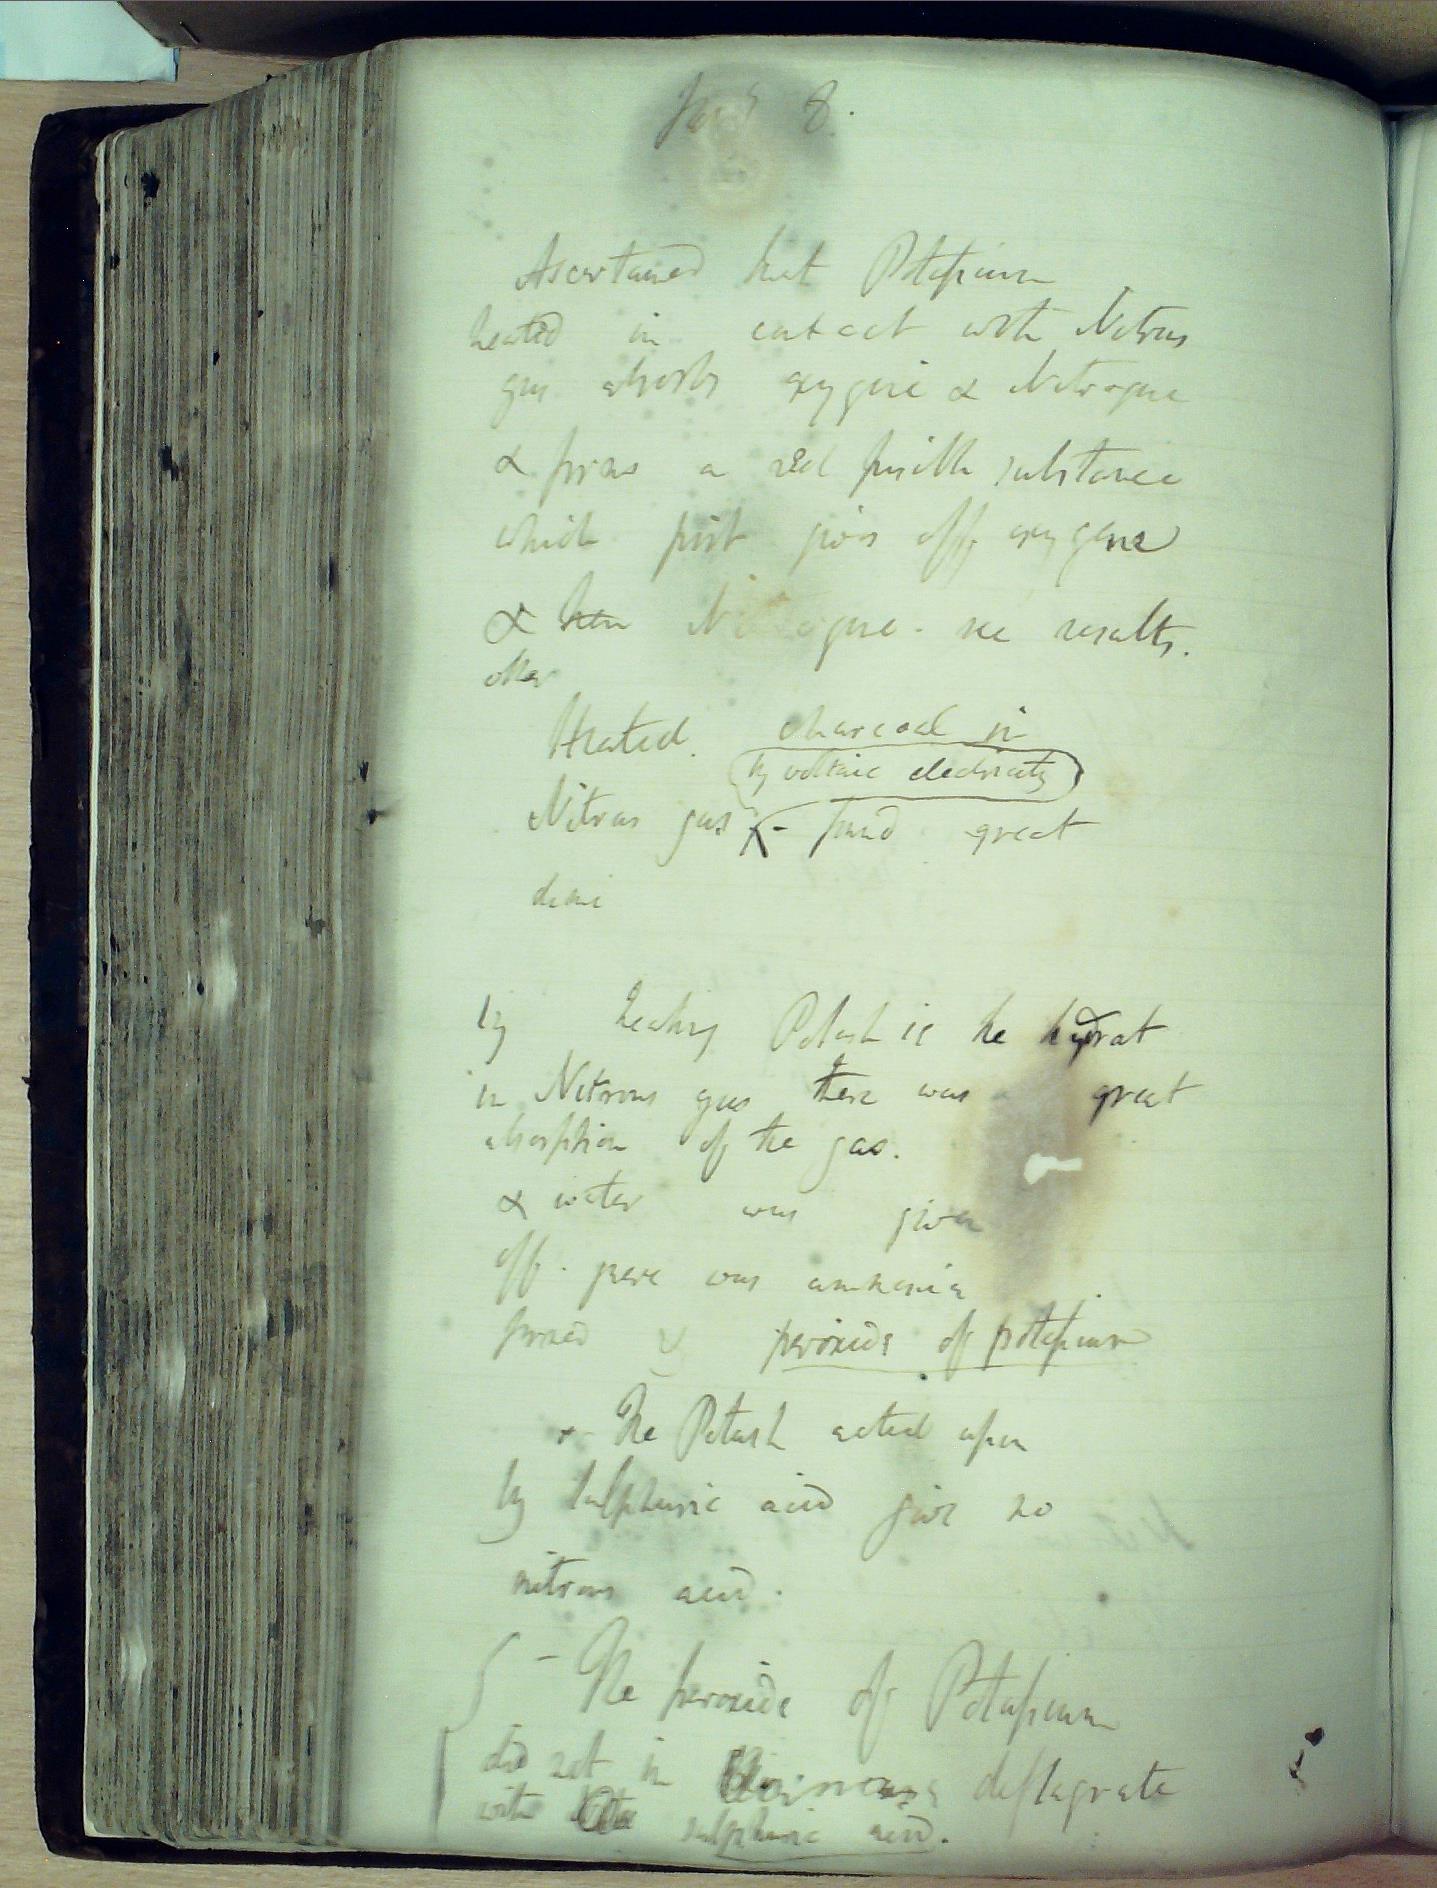 8.
Ascertained that Potassium
heated in contact with Nitrous
gas absorbs oxygene & Nitrogene
& forms a red fusible substance
which first gives off oxygene
& then Nitrogene. see results.
after
Heated charcoal in
by voltaic electricity
Nitrous gas found great
by heating Potash ie the hydrat
in Nitrous gas there was a great
absorption of the gas.
& water was given
off. pure was ammonia
formed & peroxide of potassium
- The Potash acted upon
by Sulphuric acid give no
nitrous acid.
- The peroxide of Potassium
did not in deflagrate
with sulphuric acid.